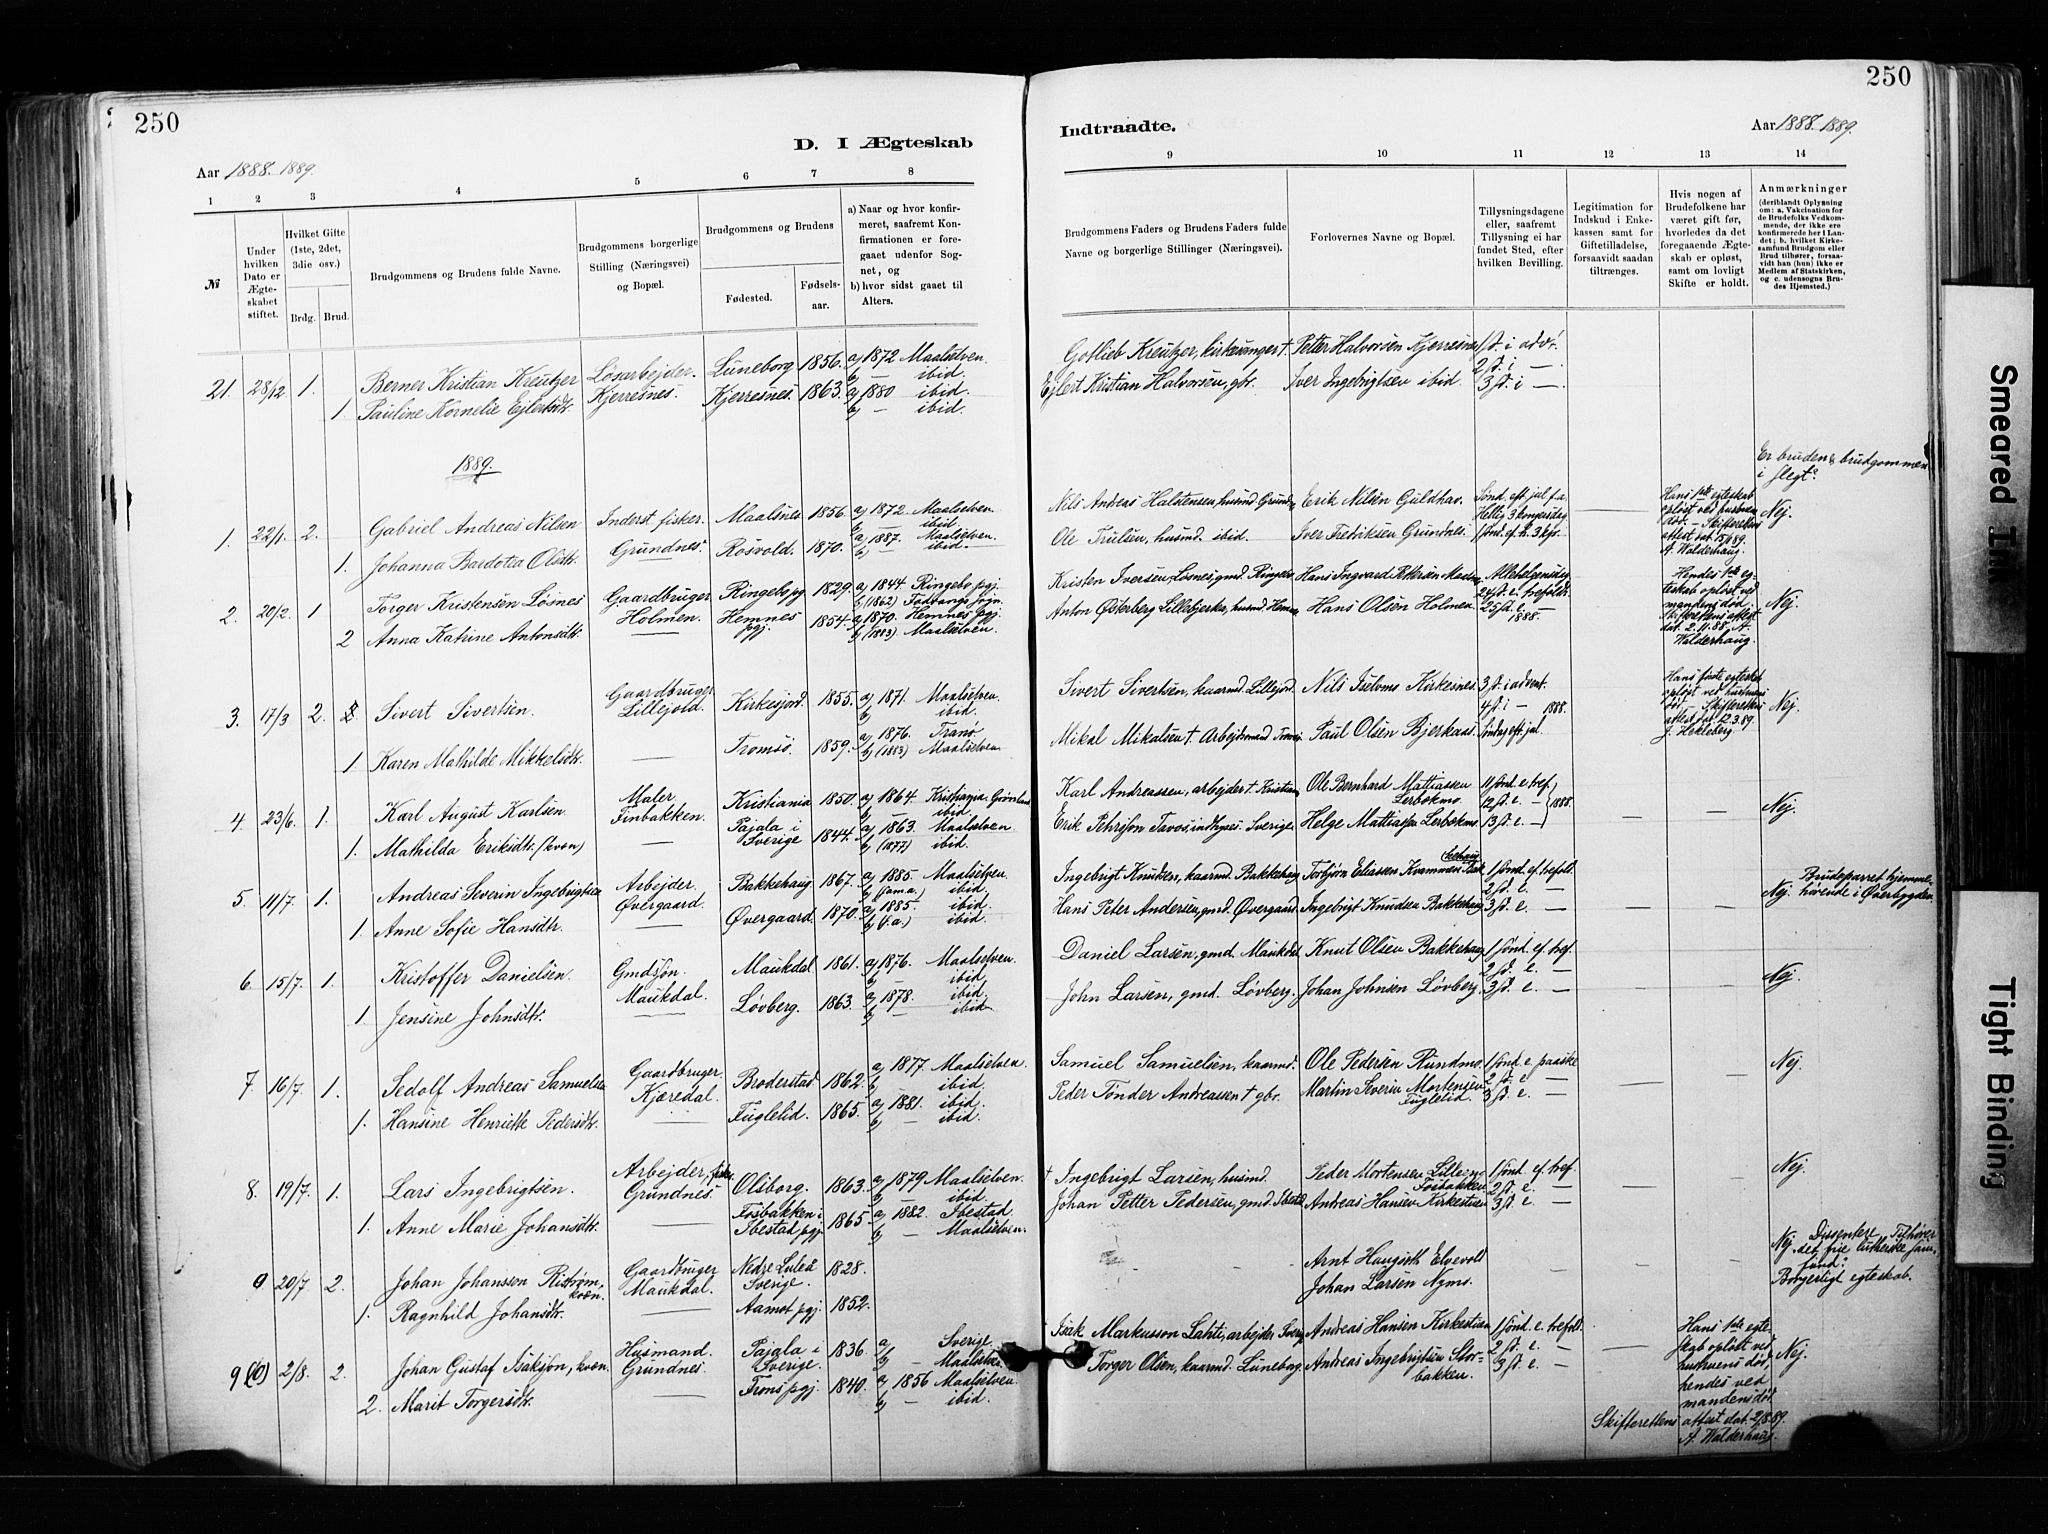 250
250
D. I Ægteskab
Indtraadte.
Aar 1888-1889.
Aar 1888-1889.
1 2 3 4 5 6 7 8
9 10 11 12 13 14
№
Under hvilken Dato er Ægteskabet stiftet.
Hvilket Gifte (1ste, 2det, 3die osv.)
Brdg. Brud.
Brudgommens og Brudens fulde Navne.
Brudgommens borgerlige Stilling (Næringsvei) og Bopæl.
Brudgommens og Brudens
Fødested.
Fødselsaar.
a) Naar og hvor konfirmeret, saafremt Konfirmationen er foregaaet udenfor Sognet, og
b) hvor sidst gaaet til Alters.
Brudgommens Faders og Brudens Faders fulde Navne og borgerlige Stillinger (Næringsvei).
Forlovernes Navne og Bopæl.
Tillysningsdagene eller, saafremt Tillysning ei har fundet Sted, efter hvilken Bevilling.
Legitimation for Indskud i Enkekassen samt for Giftetilladelse, forsaavidt saadan tiltrænges.
Hvis nogen af Brudefolkene har været gift før, hvorledes da det foregaaende Ægteskab er opløst, samt om lovligt Skifte er holdt.
Anmærkninger (deriblandt Oplysning om: a, Vakcination for de Brudefolks Vedkommende, der ikke ere konfirmerede her i Landet; b, hvilket Kirkesamfund Brudgom eller Brud tilhører, forsaavidt han (hun) ikke er Medlem af Statskirken, og c. udensogns Brudes Hjemsted.)
21. 28/12 1. Berner Kristian Kreutzer Løsarbejder. Luneborg 1856. a) 1872 Maalselven. b) — ibid. Gotlieb Kreutzer, kirkesanger †. Petter Halvorsen Kjerresnes 1 s. i adv.
1 Pauline Kornelie Ejlertsdtr. Kjerresnes. Kjerresnes. 1863. a) 1880 ibid. b) — ibid. Ejlert Kristian Halvorsen, gbr. Iver Ingebrigtsen ibid. 2 s. i — 3 s. i —
1889.
Er bruden & brudgommen i slegt?
1. 22/1. 2. Gabriel Andreas Nilsen Inderst fisker. Maalsnes 1856. a) 1872. Maalselven. b) — ibid. Nils Andreas Halstensen, husmd Grundn. Erik Nilsen Guldhav. Sønd. eft. jul f. a. Hellig 3 kongersdag Hans 1ste egteskab opløst ved hustruens død. — Skifterettens attest dat. 15/1 89. A. Walderhaug. Nej.
1. Johanna Bardotea Olsdtr. Grundnes. Rosvold. 1870. a) 1887. Maalselven. b) — ibid. Ole Trulsen, husmd. ibid. Iver Fredriksen Grundnes. 1 sønd. ef. h. 3 kgr.
2. 20/2. 1 Torger Kristensen Løsnes Gaardbruger Ringebo pg. 1829. a) 1844 Ringebo pgj. b) (1862) Kristen Iversen Løsnes, gmd. Ringebo Hans Ingvard Pettersen Allehelgensdag 24 s. e. trefoldh. Hendes 1ste egteskab opløst ved mandens død. Skifterettens attest dat. 2.11.88. A. Walderhaug. Nej.
2 Anna Katrine Antonsdtr. Holmen. Hemnes pgj. 1854. a) 1870. Hemnes pgj. b) (1883) Maalselven. Anton Østerberg Lillebjerka, husmd Hemnes Hans Olsen Holmen. 25 s. e. — 1888.
3. 17/3 2. Sivert Sivertsen. Gaardbruger Lillejord. Kirkesjord. 1855. a) 1871. Maalselven. b) — ibid. Sivert Sivertsen, kaarmd. Lillejord. Nils Iselvmo Kirkesnes. 3 s. i advent. 4 s. i — 1888. Hans første egteskab opløst ved hustruens død. — Skifterettens attest dat. 12.3.89. J. Hekleberg. Nej.
1 Karen Mathilde Mikkelsdtr. — Tromsø. 1859. a) 1876. Tranø b) (1883) Maalselven Mikal Mikalsen †. Arbejdsmand Tromsø. Paul Olsen Bjerkaas. Søndag eft. jul.
4. 23/6. 1. Karl August Karlsen. Maler Finbakken. Kristiania 1850. a) 1864. Kristiania. Grønland b) — Maalselven Karl Andreassen, arbejder † Kristiania Ole Bernhard Mattiassen Lerbekmo. 11 sønd. e. tref. 12 s. e. — 1888. — — Nej.
1. Mathilda Eriksdtr. (kvæn) — Pajala i Sverige 1844. a) 1863. b) (1877) ibid. Erik Pehrsson Tavos, indhyses. Sverige. Helge Mattiassen Lerbekmo. 13 s. e. —
5. 11/7. 1. Andreas Severin Ingebrigtsen Arbejder Bakkehaug. 1867. a) 1885. Maalselven. b) (s.a.) ibid. Ingebrigt Knudsen, kaarmd. Bakkehaug Torbjørn Eliassen Kvammen Bakkehaug 1 sønd. ef. trefold. 2 s. e. — — — Nej. Brudeparret hjemmehørende i Øverbygden.
1. Anne Sofie Hansdtr. Øvergaard. Øvergaard. 1870. a) 1885. b) (s.a.) ibid. Hans Peter Andersen, gmd. Øvergaard Ingebrigt Knudsen Bakkehaug 3 s. e. —
6. 15/7. 1. Kristoffer Danielsen. Gmdsøn. Maukdal 1861. a) 1876. Maalselven. b) — ibid. Daniel Larsen, gmd. Maukdal Knut Olsen Bakkehaug 1 sønd. ef. tref. 2 s. e. — — — Nej.
1. Jensine Johnsdtr. Maukdal. Løvberg. 1863. a) 1878. ibid. b) — ibid. John Larsen, gmd. Løvberg. Johan Johnsen Løvberg. 3 s. e. —
7. 16/7. 1. Sedolf Andreas Samuelsen Gaardbruger Kjæredal. Broderstad 1862. a) 1877. Maalselven. b) — ibid. Samuel Samuelsen, kaarmd. Ole Pedersen Rundmo. 1 sønd. e. paaske 2 s. e. — — — Nej.
1. Hansine Henriette Pedersdtr. — Fuglelid. 1865. a) 1881. ibid. b) — ibid. Peder Tønder Andreassen † gbr. Martin Severin Mortensen Fuglelid. 3 s. e. —
8. 19/7. 1. Lars Ingebrigtsen. Arbejder, fisker Grundnes. Olsborg. 1863. a) 1879 Maalselven. b) — ibid. † Ingebrigt Larsen, husmd. Peder Mortensen Fosbakken 1 sønd. ef. tref. 2 s. e. — — — Nej.
1. Anne Marie Johansdtr. — Fosbakken i Ibestad pgj. 1865. a) 1882. Ibestad b) — Maalselven. Johan Petter Pedersen, gmd Ibestad Andreas Hansen Kirkestuen 3 s. e. —
9 20/7. 2. Johan Johansson Riström kvæn. Gaardbruger Maukdal. Nedre Luleå Sverige. 1828. — — Arnt Haugseth Elvevold — Nej. Dissentere. Tilhører det frie lutherske samfund? Borgerligt egteskab.
1. Ragnhild Johansdtr. — Aamot pgj. 1852. Johan Larsen Nymo.
9 (10) 2/8. 2. Johan Gustaf Isaksson, kvæn. Husmand. Grundnes. Pajala i Sverige. 1836. a) Sverige. b) — Maalselven Isak Markusson Lahti, arbejder Sverige Andreas Hansen Kirkestuen 1 sønd. e. trefold. 2 s. e. — — Hans 1ste egteskab opløst ved hustruens død, hendes ved mandens død. Nej.
2. Marit Torgersdtr. — Trons pgj. 1840. a) 1856 Maalselven. b) — ibid. Torger Olsen, kaarmd. Luneborg. Andreas Ingebrigtsen Storbakken. 3 s. e. — Skifterettens attest dat. 2/8 89. A. Walderhaug.
Smeared Ink
Tight Binding